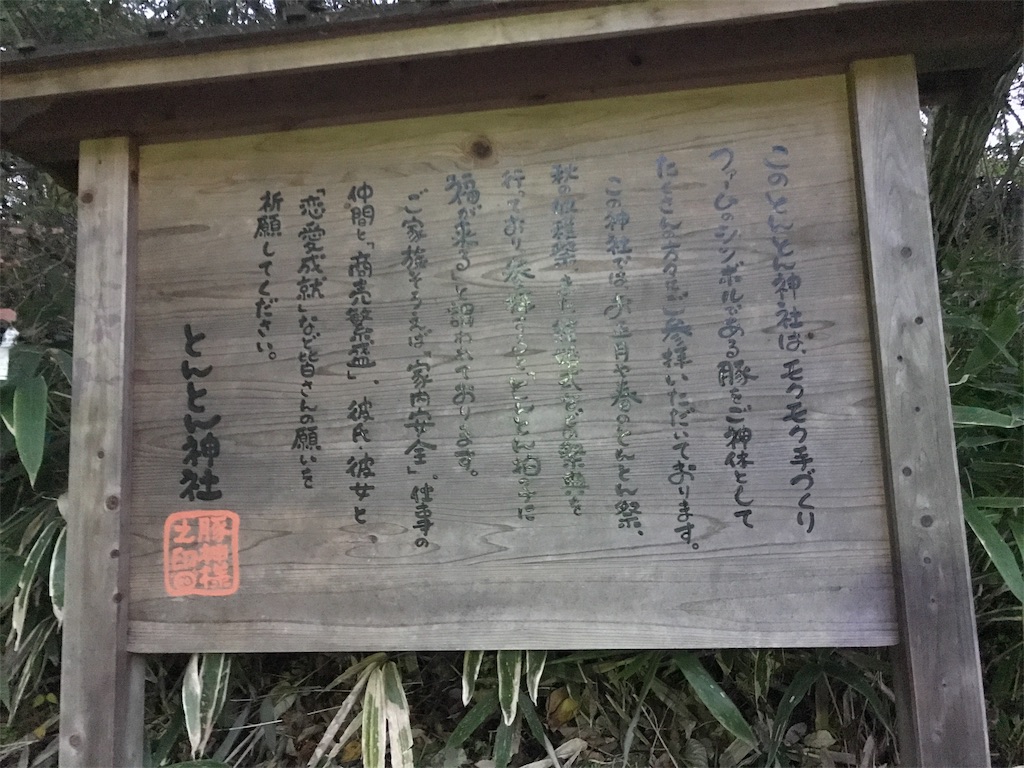 このとんとん神社は、モクモク手づくり
ファームのシンボルである豚をご神体として
たくさん方々にご参拝いただいております。
この神社では、お正月や春のとんとん祭、
秋の収穫祭、また結婚式などの祭典を
行っており、参拝すると、とんとん拍子に
福が来ると謂われております。
ご家族そろえば「家内安全」。仕事の
仲間と「商売繁盛」、彼氏・彼女と
「恋愛成就」など皆さんの願いを
祈願してください。
とんとん神社
豚神様
之印